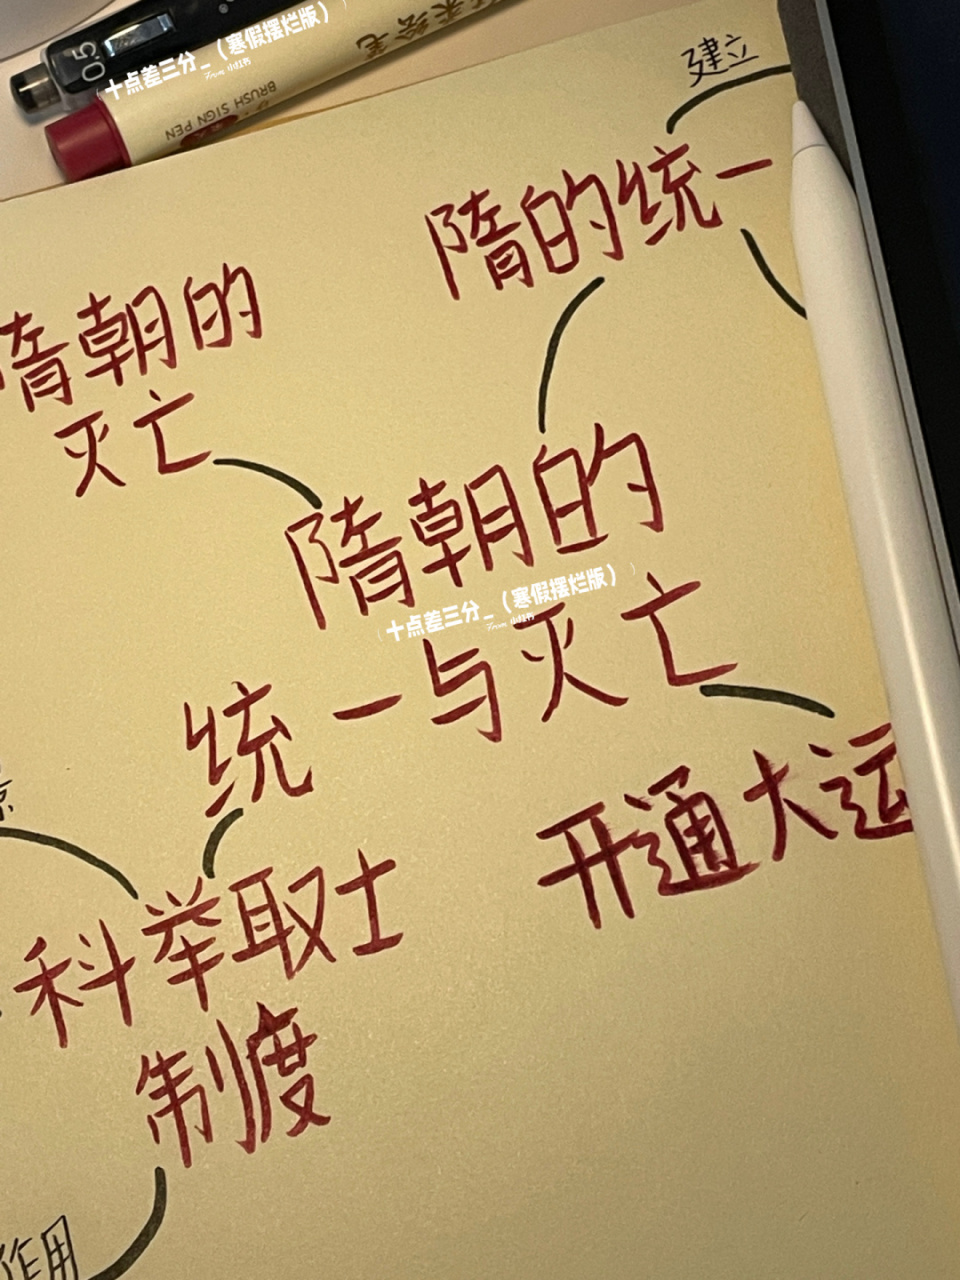 0.5
十点差三分_（寒假摆烂版）
From 小红书
BRUSH SIGN PEN
建立
隋的统一
隋朝的
灭亡
隋朝的
统一与灭亡
十点差三分_（寒假摆烂版）
From 小红书
开通大运
科举取士
制度
作用